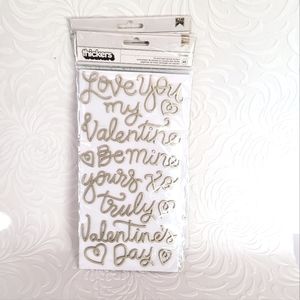 thickers
Love You
my
Valentine
Be mine
yours xo
truly
Valentine's
Day